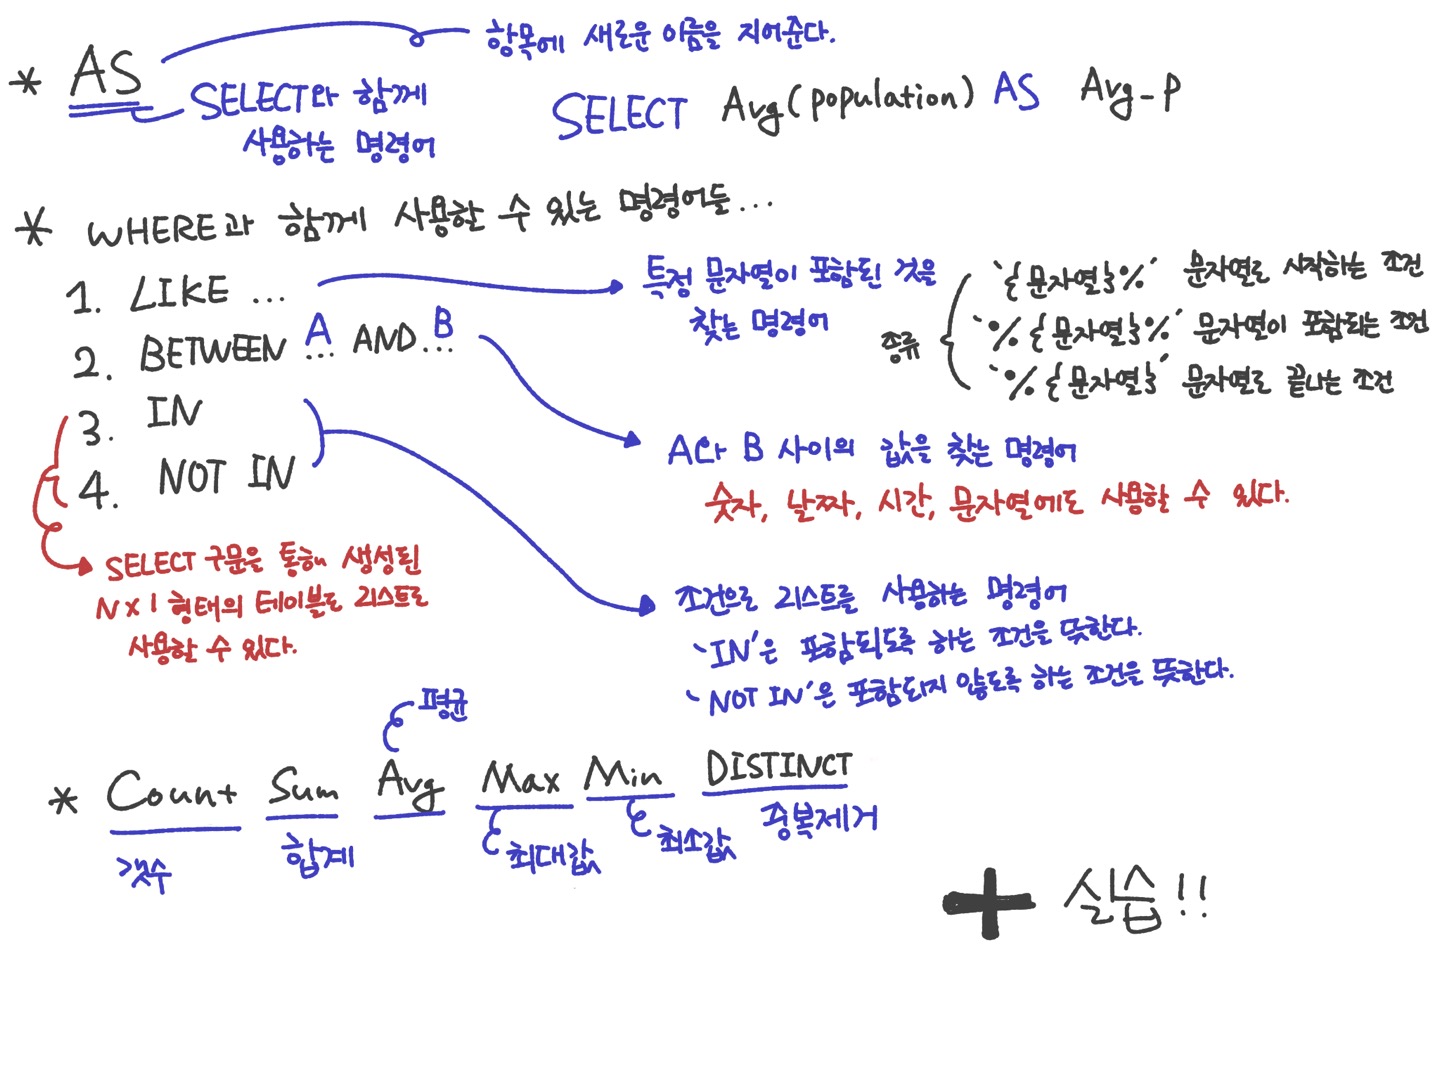 항목에 새로운 이름을 지어준다.
* AS
SELECT와 함께
사용하는 명령어
SELECT Avg(population) AS Avg_P
* WHERE과 함께 사용할 수 있는 명령어들...
1. LIKE ...
특정 문자열이 포함된 것을
찾는 명령어
종류
'{문자열}%' 문자열로 시작하는 조건
'%{문자열}%' 문자열이 포함되는 조건
'%{문자열}' 문자열로 끝나는 조건
A B
2. BETWEEN ... AND ...
A와 B 사이의 값을 찾는 명령어
숫자, 날짜, 시간, 문자열에도 사용할 수 있다.
3. IN
4. NOT IN
SELECT 구문을 통해 생성된
N x 1 형태의 테이블도 리스트로
사용할 수 있다.
조건으로 리스트를 사용하는 명령어
'IN'은 포함되도록 하는 조건을 뜻한다.
'NOT IN'은 포함되지 않도록 하는 조건을 뜻한다.
평균
* Count Sum Avg Max Min DISTINCT
갯수 합계 최대값 최소값 중복제거
+ 실습!!